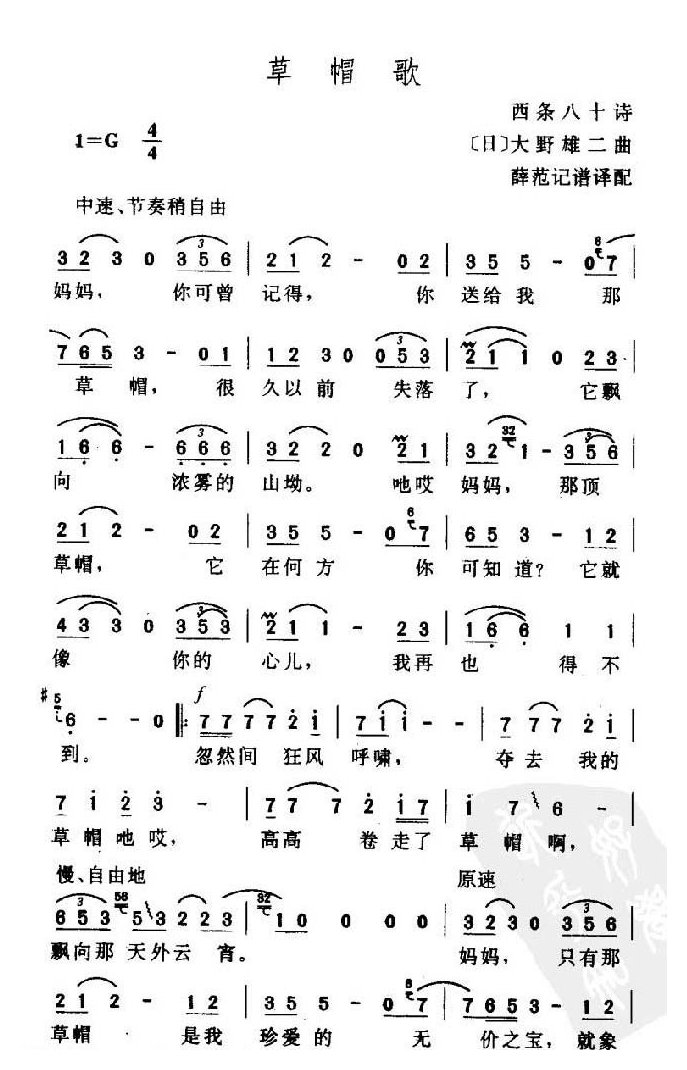 草帽歌
西条八十诗
1=G 4/4
〔日〕大野雄二曲
薛范记谱译配
中速、节奏稍自由
3 2 3 0 3 5 6 | 2 1 2 - 0 2 | 3 5 5 - 0 7 |
妈妈, 你可曾 记得, 你 送给我 那
7 6 5 3 - 0 1 | 1 2 3 0 0 5 3 | 2 1 1 0 2 3 |
草 帽, 很 久以前 失落 了, 它飘
1 6 6 - 6 6 6 | 3 2 2 0 2 1 | 3 2 1 - 3 5 6 |
向 浓雾的 山坳。 吔哎 妈妈, 那顶
2 1 2 - 0 2 | 3 5 5 - 0 7 | 6 5 3 - 1 2 |
草帽, 它 在何方 你 可知道? 它就
4 3 3 0 3 5 3 | 2 1 1 - 2 3 | 1 6 6 1 1 |
像 你的 心儿, 我再 也 得不
f
6 - - 0 ‖: 7 7 7 7 7 2 i | 7 i i - - | 7 7 7 2 i |
到。 忽然间 狂风 呼啸, 夺去 我的
7 i 2 3 - | 7 7 7 2 i 7 | i 7 6 - |
草帽吔哎, 高高 卷走了 草帽啊,
慢、自由地 原速
6 5 3 5 3 2 2 3 | 1 0 0 0 0 | 3 2 3 0 3 5 6 |
飘向那 天外云 宵。 妈妈, 只有那
2 1 2 - 1 2 | 3 5 5 - 0 7 | 7 6 5 3 - 1 2 |
草帽 是我 珍爱的 无 价之宝, 就象